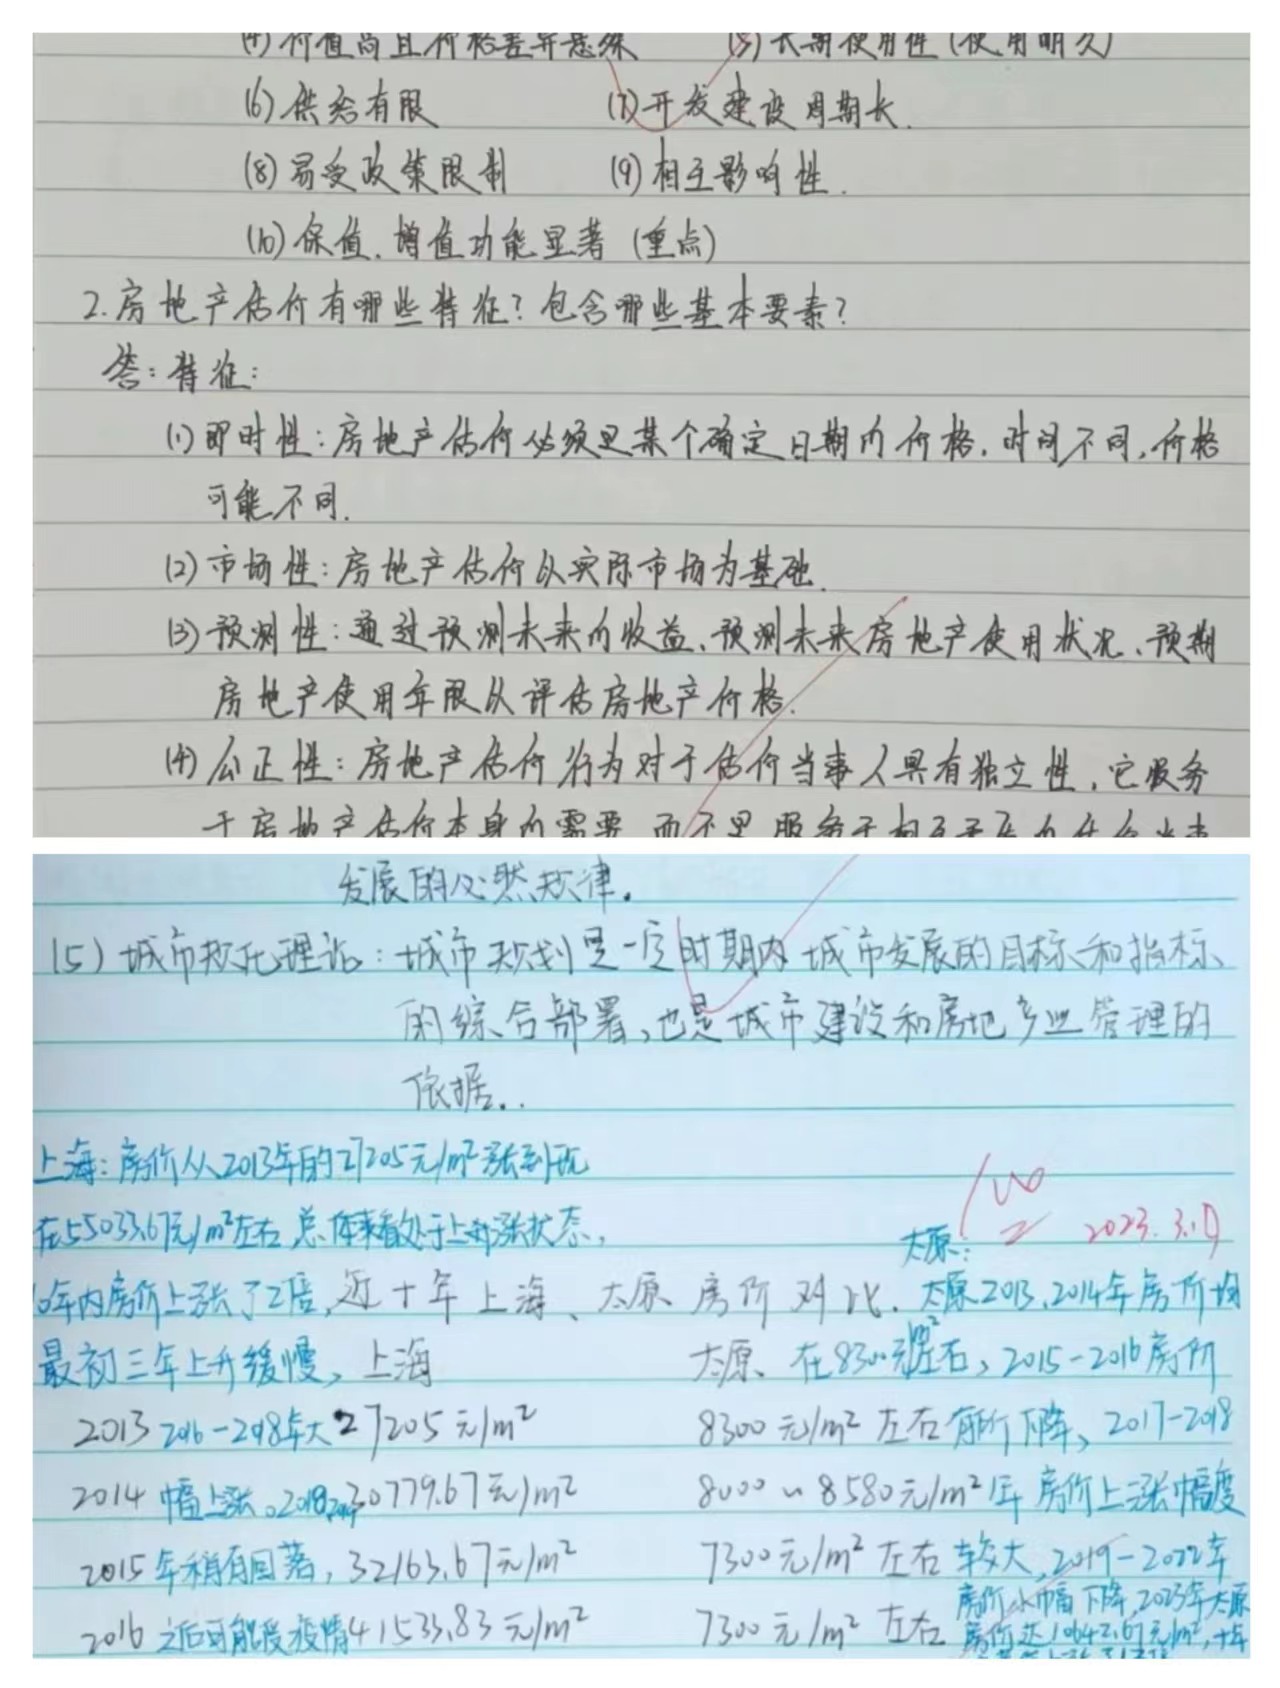 (4)价值高且价格差异悬殊 (5)长期使用性(使用耐久)
(6)供给有限 (7)开发建设周期长.
(8)易受政策限制 (9)相互影响性.
(10)保值.增值功能显著(重点)
2.房地产估价有哪些特征?包含哪些基本要素?
答:特征:
(1)即时性:房地产估价必须是某个确定日期的价格.时间不同,价格
可能不同.
(2)市场性:房地产估价以实际市场为基础.
(3)预测性:通过预测未来的收益、预测未来房地产使用状况、预期
房地产使用年限以评估房地产价格.
(4)公正性:房地产估价行为对于估价当事人具有独立性,它服务
于房地产估价本身的需要,而不是服务于
发展的必然规律。
(5)城市规化理论:城市规划是一定时期内城市发展的目标和指标、
的综合部署,也是城市建设和房地产业管理的
依据..
上海:房价从2013年的27205元/m²涨到现
在55033.67元/m²左右,总体来看处于上升涨状态,
100 2023.3.19
太原:
10年内房价上涨了2倍,近十年上海、太原房价对比. 太原2013、2014年房价均
最初三年上升缓慢, 上海 太原 在8300元/m²左右,2015-2016房价
2013 2016-2018年大 27205元/m² 8300元/m²左右 有所下降、2017-2018
2014 幅上涨。2018,2019 30779.67元/m² 8000~8580元/m² 年房价上涨幅度
2015 年稍有回落, 32163.67元/m² 7300元/m²左右 较大,2019-2022年
2016 之后可能受疫情 41533.83元/m² 7300元/m²左右 房价小幅下降,2023年太原
房价达10642.67元/m²,十年